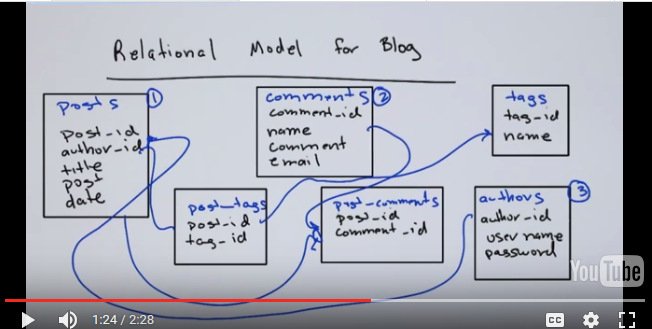 Relational Model for Blog
posts 1
post_id
author_id
title
post
date
comments 2
comment_id
name
comment
email
tags
tag_id
name
post_tags
post_id
tag_id
post_comments
post_id
comment_id
authors 3
author_id
user name
password
YouTube
1:24 / 2:28
CC